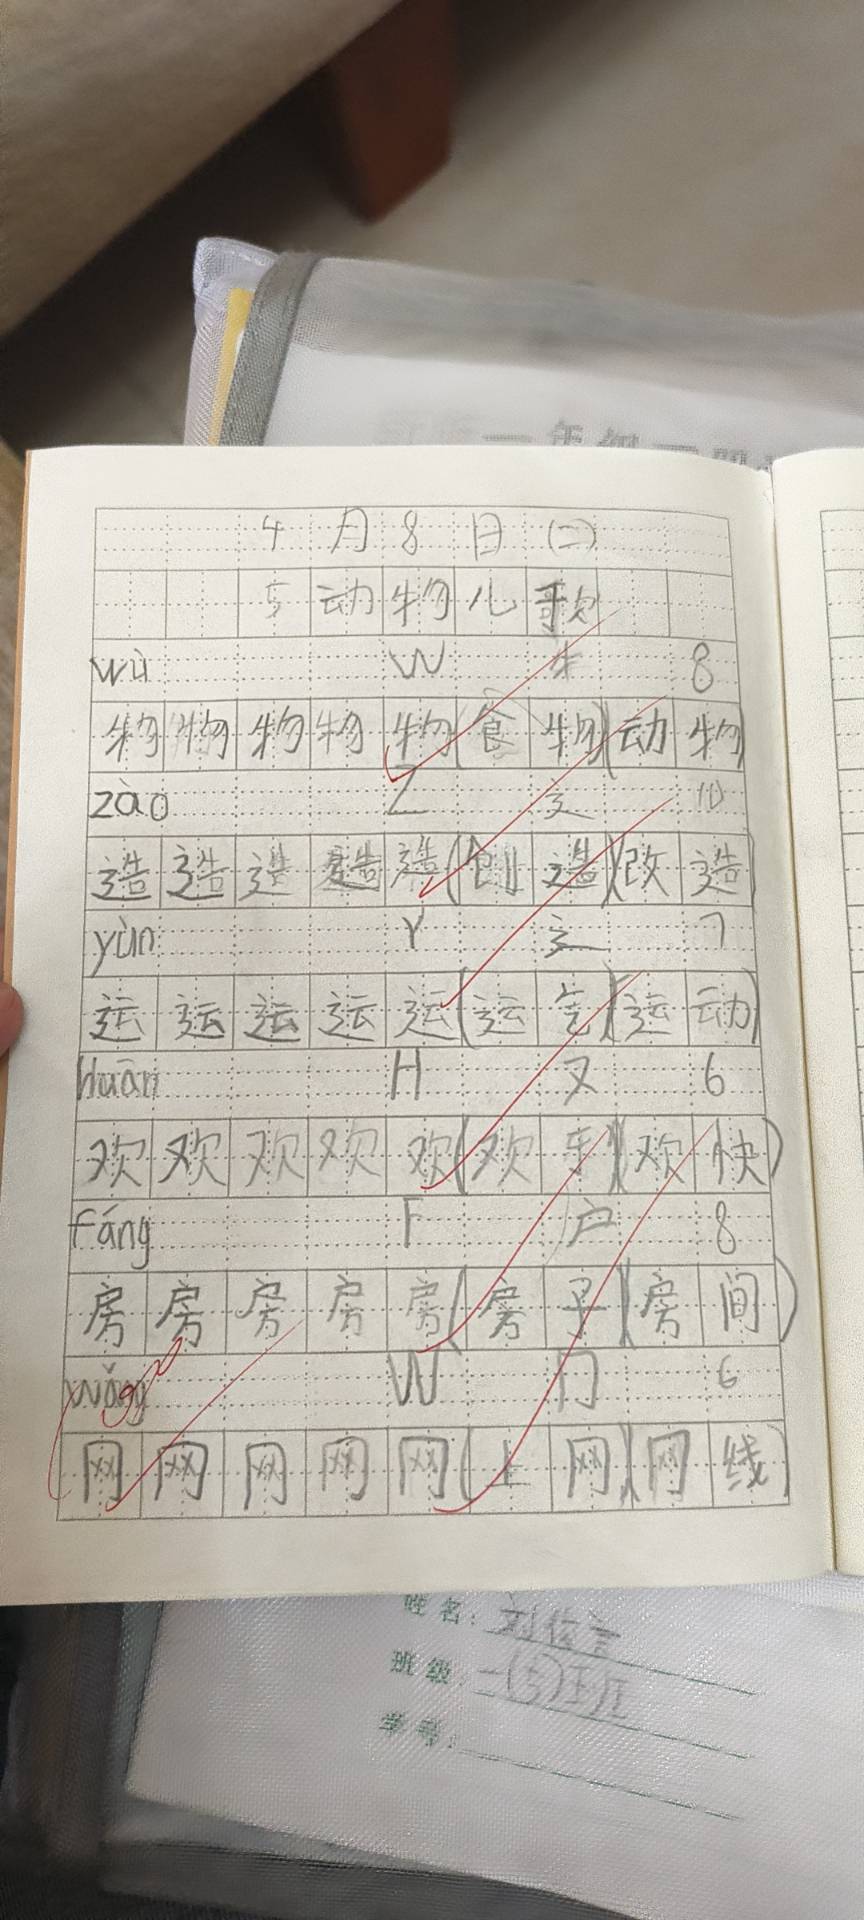 4月8日(二)
5动物儿歌
wù W 牛 8
物物物物物(食物)(动物)
zào Z 辶 10
造造造造造(创造)(改造)
yùn Y 辶 7
运运运运运(运气)(运动)
huān H 又 6
欢欢欢欢欢(欢乐)(欢快)
fáng F 户 8
房房房房房(房子)(房间)
wǎng W 冂 6
网网网网网(上网)(网线)
姓名:
班级:一(5)班
学号: